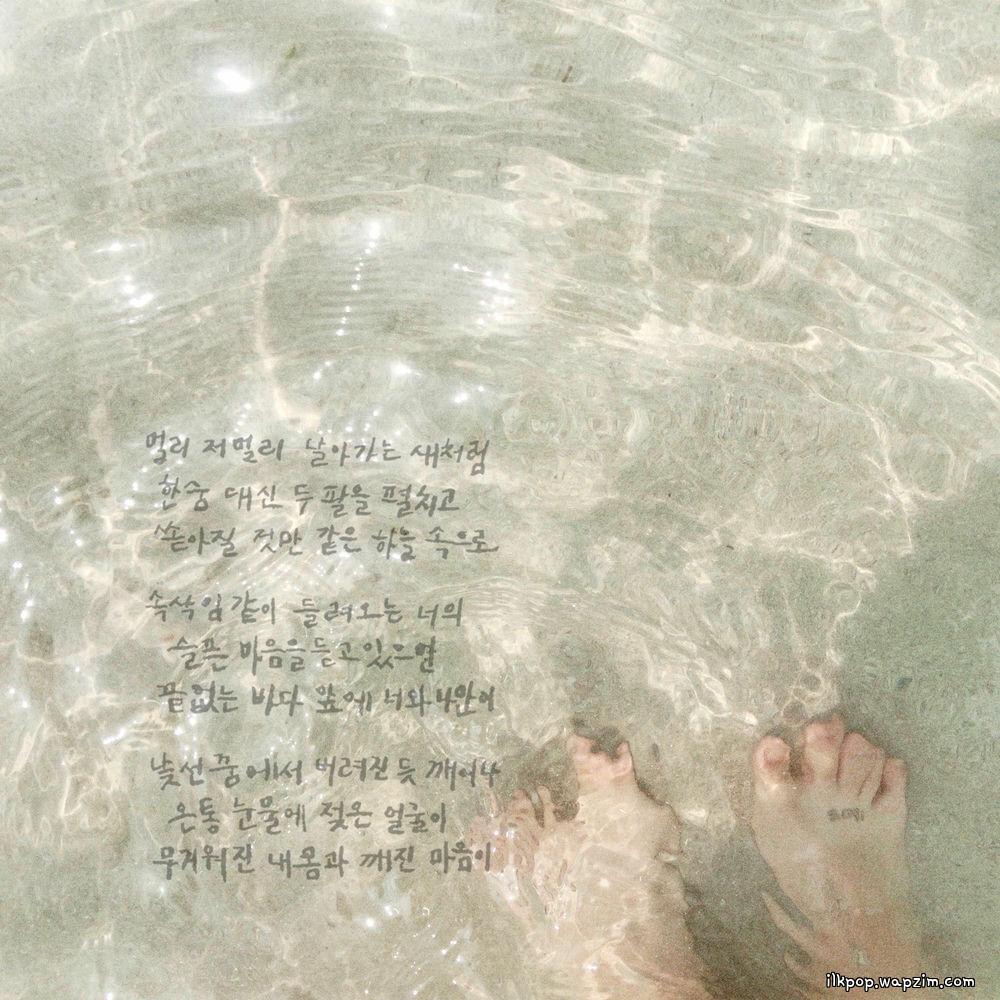 멀리 저멀리 날아가는 새처럼
한숨 대신 두 팔을 펼치고
쏟아질 것만 같은 하늘 속으로
속삭임 같이 들려오는 너의
슬픈 마음을 듣고있으면
끝없는 바다 앞에 너와 나만이
낯선 꿈에서 버려진 듯 깨어나
온통 눈물에 젖은 얼굴이
무거워진 내 몸과 깨진 마음이
ilkpop.wapzim.com